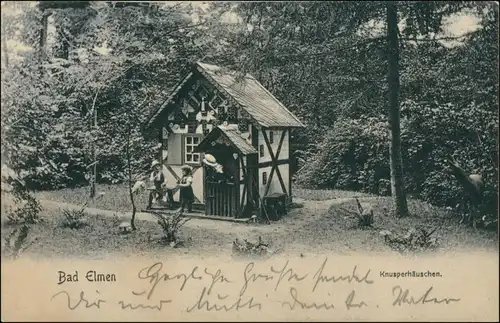 Bad Elmen
Knusperhäuschen.
Herzliche Grüße sendet
Dir und Mutti dein dr. Vater